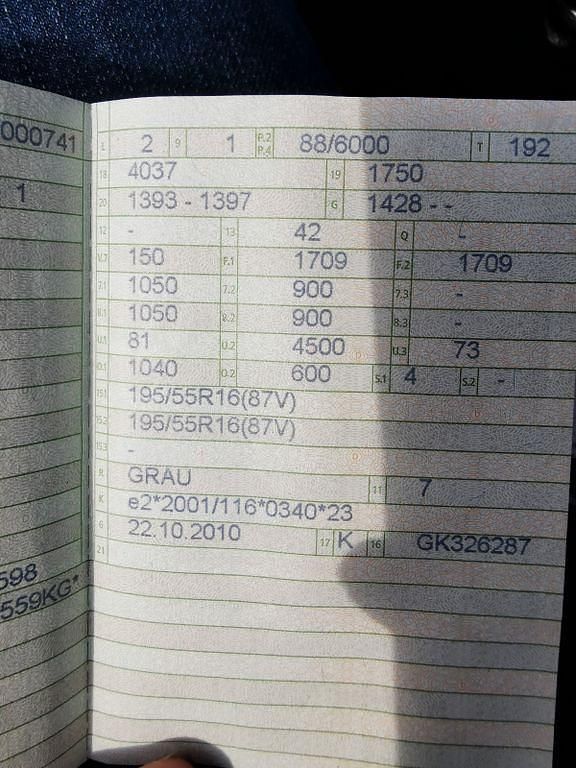 000741
1
598
559KG*
L 2 9 1 P.2 P.4 88/6000 T 192
18 4037 19 1750
20 1393 - 1397 G 1428 - -
12 - 13 42 Q -
V.7 150 F.1 1709 F.2 1709
7.1 1050 7.2 900 7.3 -
8.1 1050 8.2 900 8.3 -
U.1 81 U.2 4500 U.3 73
O.1 1040 O.2 600 S.1 4 S.2 -
15.1 195/55R16(87V)
15.2 195/55R16(87V)
15.3 -
R GRAU 11 7
K e2*2001/116*0340*23
6 22.10.2010 17 K 16 GK326287
21